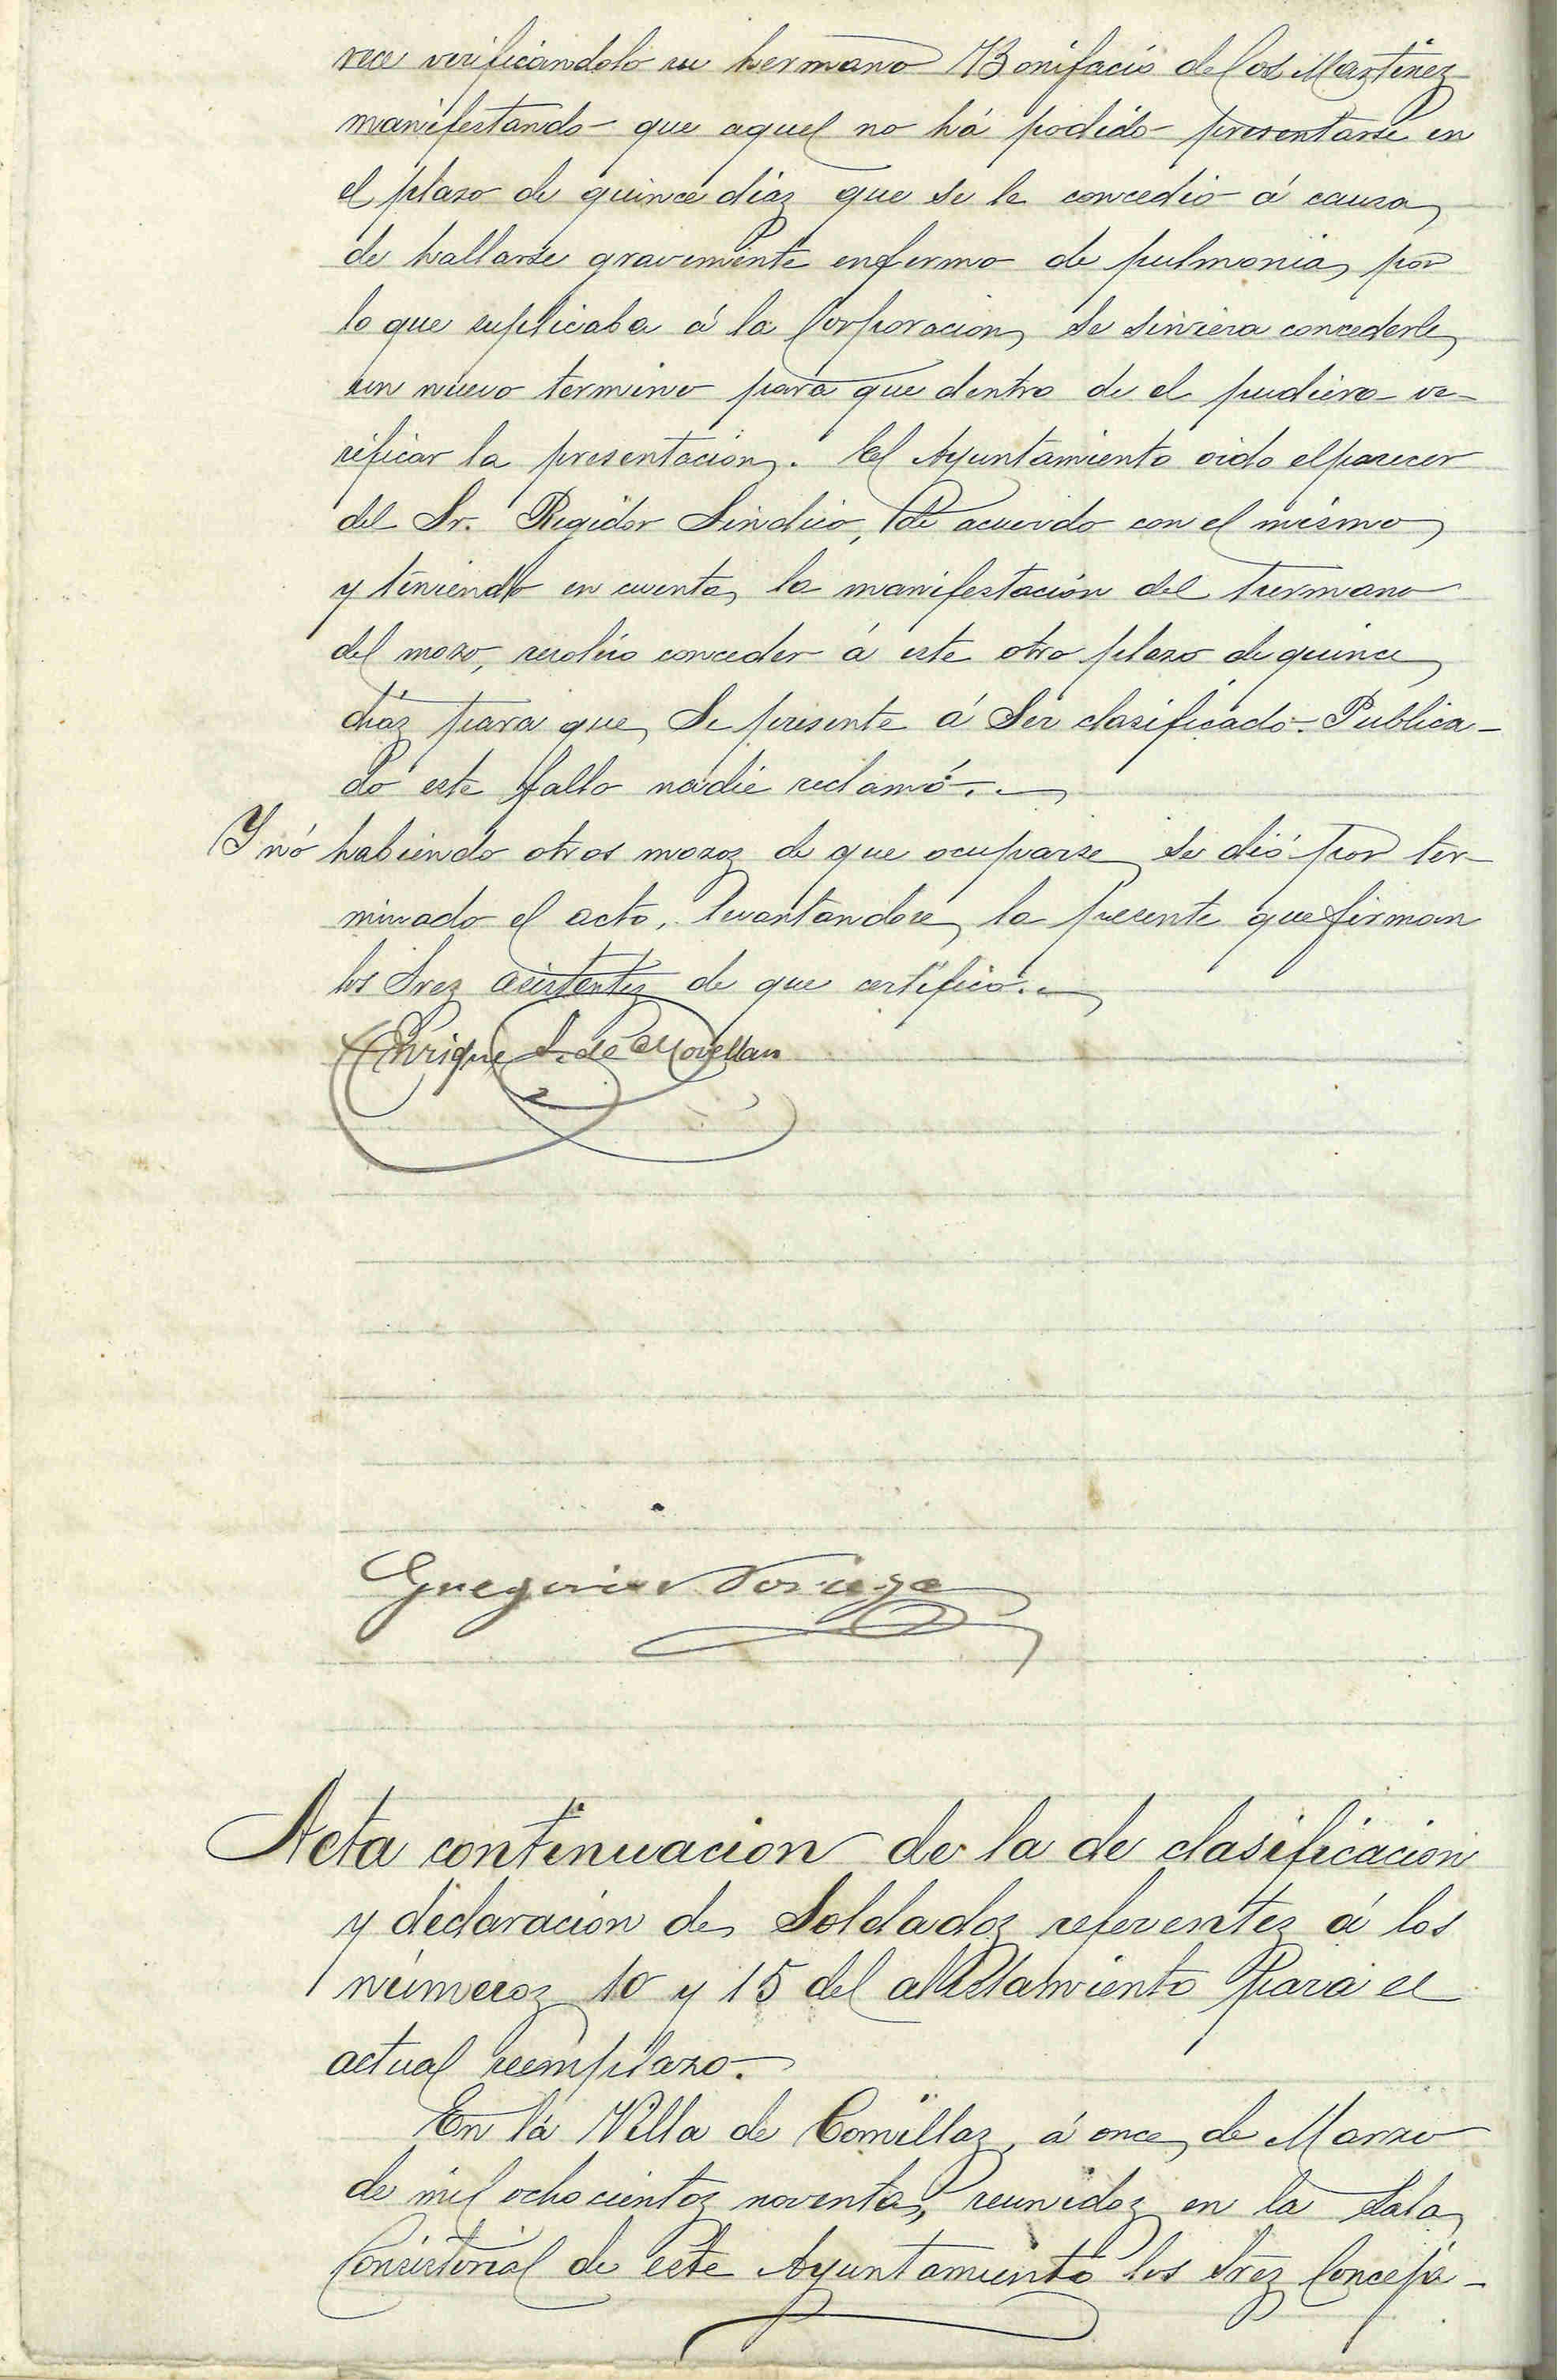 rece verificandolo su hermano Bonifacio de los Martinez
manifestando que aquel no há podido presentarse en
el plazo de quince diaz que se le concedió á causa
de hallarse gravemente enfermo de pulmonia, por
lo que suplicaba á la Corporacion, se sirviera concederle
un nuevo termino para que dentro de el pudiera ve-
rificar la presentacion. El Ayuntamiento oido el parecer
del Sr. Regidor Sindico, de acuerdo con el mismo
y teniendo en cuenta, la manifestación del hermano
del mozo, resolvió conceder á este otro plazo de quince
diaz para que, se presente á ser clasificado. Publica-
do este fallo nadie reclamó.
Y nó habiendo otros mozoz de que ocuparse se dió por ter-
minado el acto, levantandose, la presente que firman
los Srez asistentez de que certifico.
Enrique S. de Movellan
Gregorio Noriega
Acta continuacion de la de clasificacion
y declaración de Soldadoz referentez á los
númeroz 10 y 15 del alistamiento para el
actual reemplazo.
En la Villa de Comillaz, á once de Marzo
de mil ochocientoz noventa, reunidoz en la Sala
Consistorial de este Ayuntamiento los Srez Conceja-